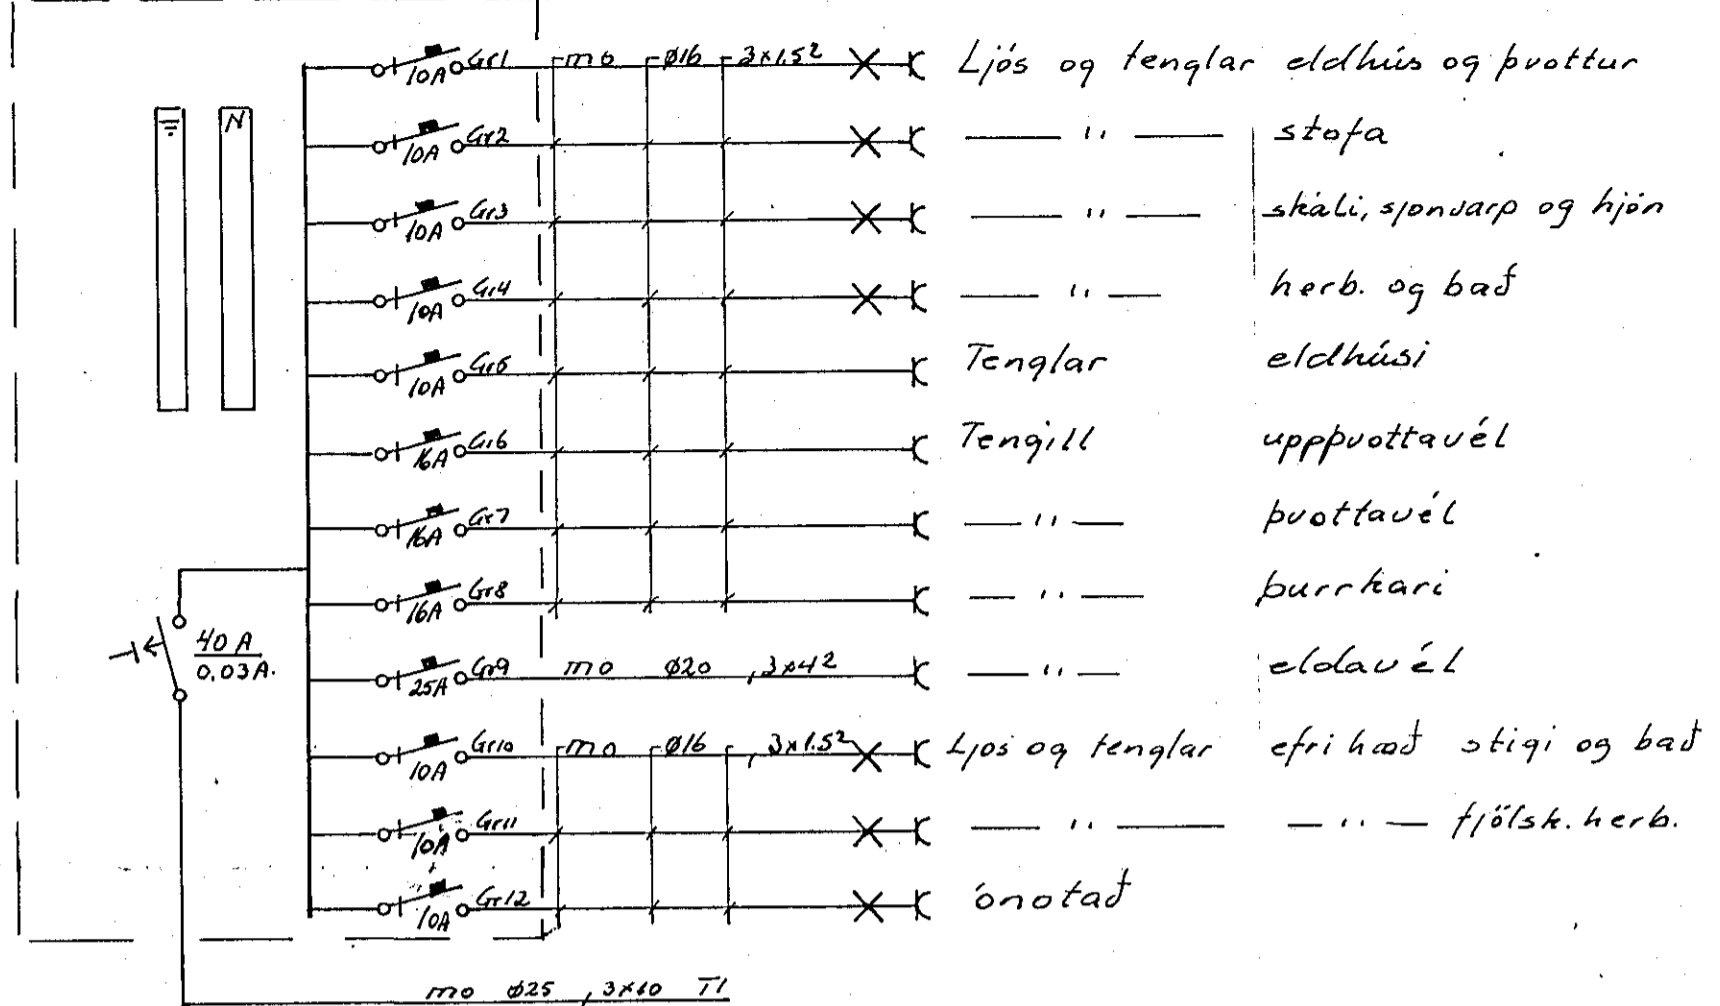 10A Gr1 mo ø16 3x1.5² Ljós og tenglar eldhús og þvottur
N
10A Gr2 —— " —— stofa
10A Gr3 —— " —— skáli, sjonvarp og hjón
10A Gr4 —— " —— herb. og bað
10A Gr5 Tenglar eldhúsi
16A Gr6 Tengill uppþvottavél
16A Gr7 —— " —— þvottavél
16A Gr8 —— " —— þurrkari
40 A
0,03A.
25A Gr9 mo ø20 , 3x4² —— " —— eldavél
10A Gr10 mo ø16 , 3x1.5² Ljos og tenglar efri hæð stigi og bað
10A Gr11 —— " —— — " — fjölsk. herb.
10A Gr12 ónotað
mo ø25 , 3x10 TI